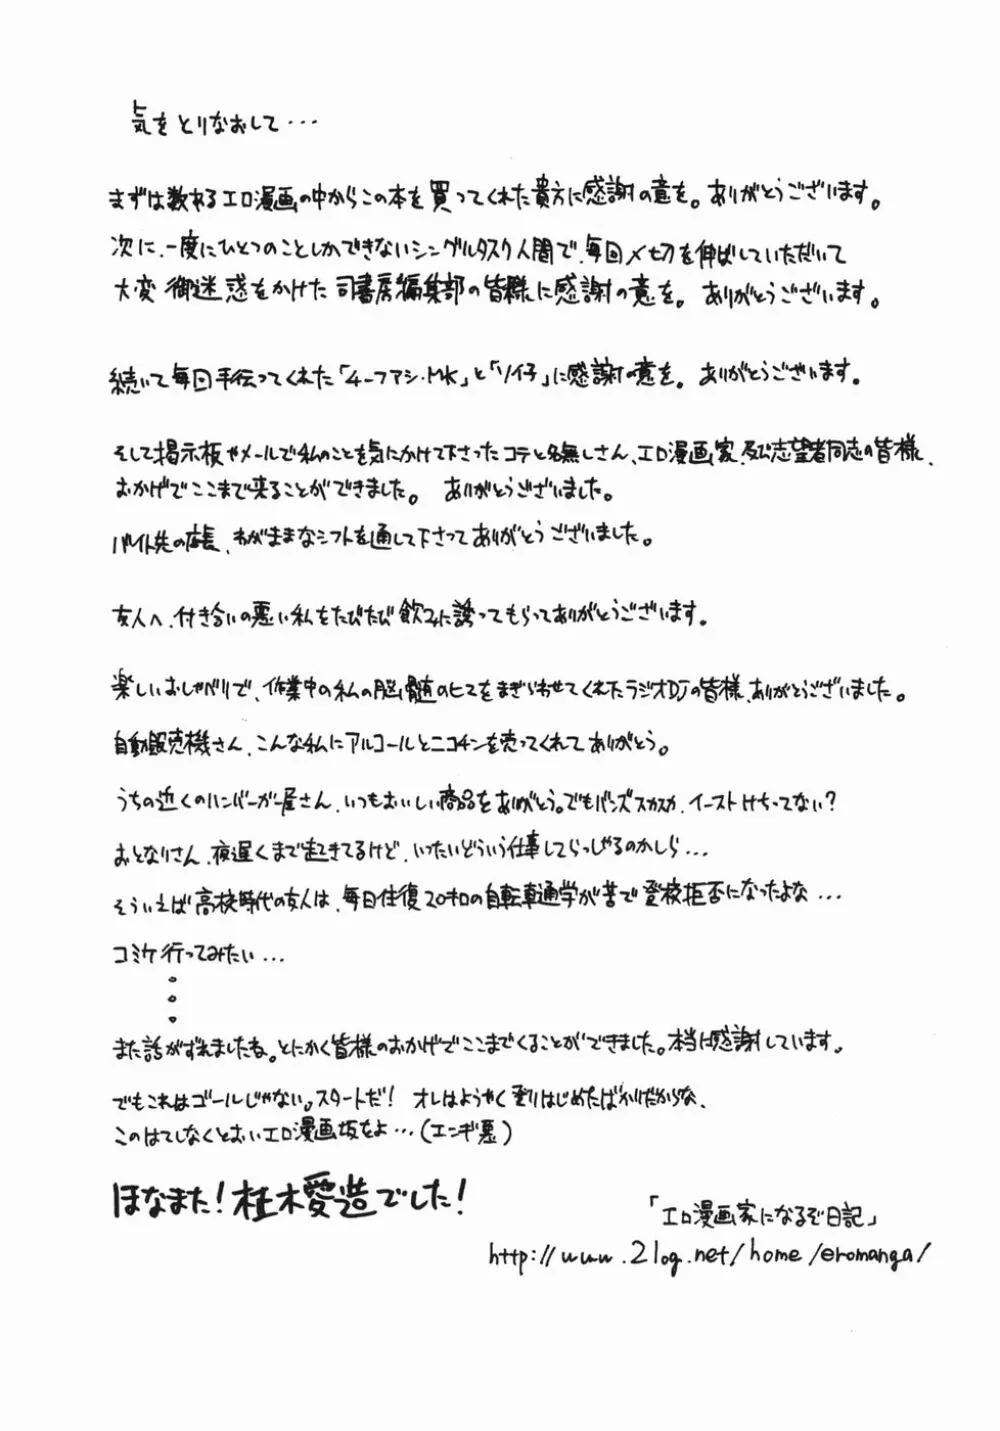 気をとりなおして…
まずは数あるエロ漫画の中からこの本を買ってくれた貴方に感謝の意を。ありがとうございます。
次に、一度にひとつのことしかできないシングルタスク人間で、毎回〆切を伸ばしていただいて
大変御迷惑をかけた司書房編集部の皆様に感謝の意を。ありがとうございます。
続いて毎回手伝ってくれた「4-ファン・MK」と「ソイ子」に感謝の意を。ありがとうございます。
そして掲示板やメールで私のことを気にかけて下さったコテと名無しさん、エロ漫画家、及び志望者同志の皆様、
おかげでここまで来ることができました。 ありがとうございました。
バイト先の店長、わがままなシフトを通して下さってありがとうございました。
友人へ、付き合いの悪い私をたびたび飲みに誘ってもらってありがとうございます。
楽しいおしゃべりで、作業中の私の脳髄のヒマをまぎらわせてくれたラジオDJの皆様、ありがとうございました。
自動販売機さん、こんな私にアルコールとニコチンを売ってくれてありがとう。
うちの近くのハンバーガー屋さん、いつもおいしい商品をありがとう。でもバンズスカスカ、イーストけちってない?
おとなりさん、夜遅くまで起きてるけど、いったいどういう仕事してらっしゃるのかしら…
そういえば高校時代の友人は、毎日往復20キロの自転車通学が苦で登校拒否になったよな…
コミケ行ってみたい…
。
。
。
また話がずれましたね。とにかく皆様のおかげでここまでくることができました。本当に感謝しています。
でもこれはゴールじゃない。スタートだ! オレはようやく登りはじめたばかりだからな、
このはてしなくとおいエロ漫画坂をよ…(エンギ悪)
ほなまた!桂木愛造でした!
「エロ漫画家になるぞ日記」
http://www.2log.net/home/eromanga/